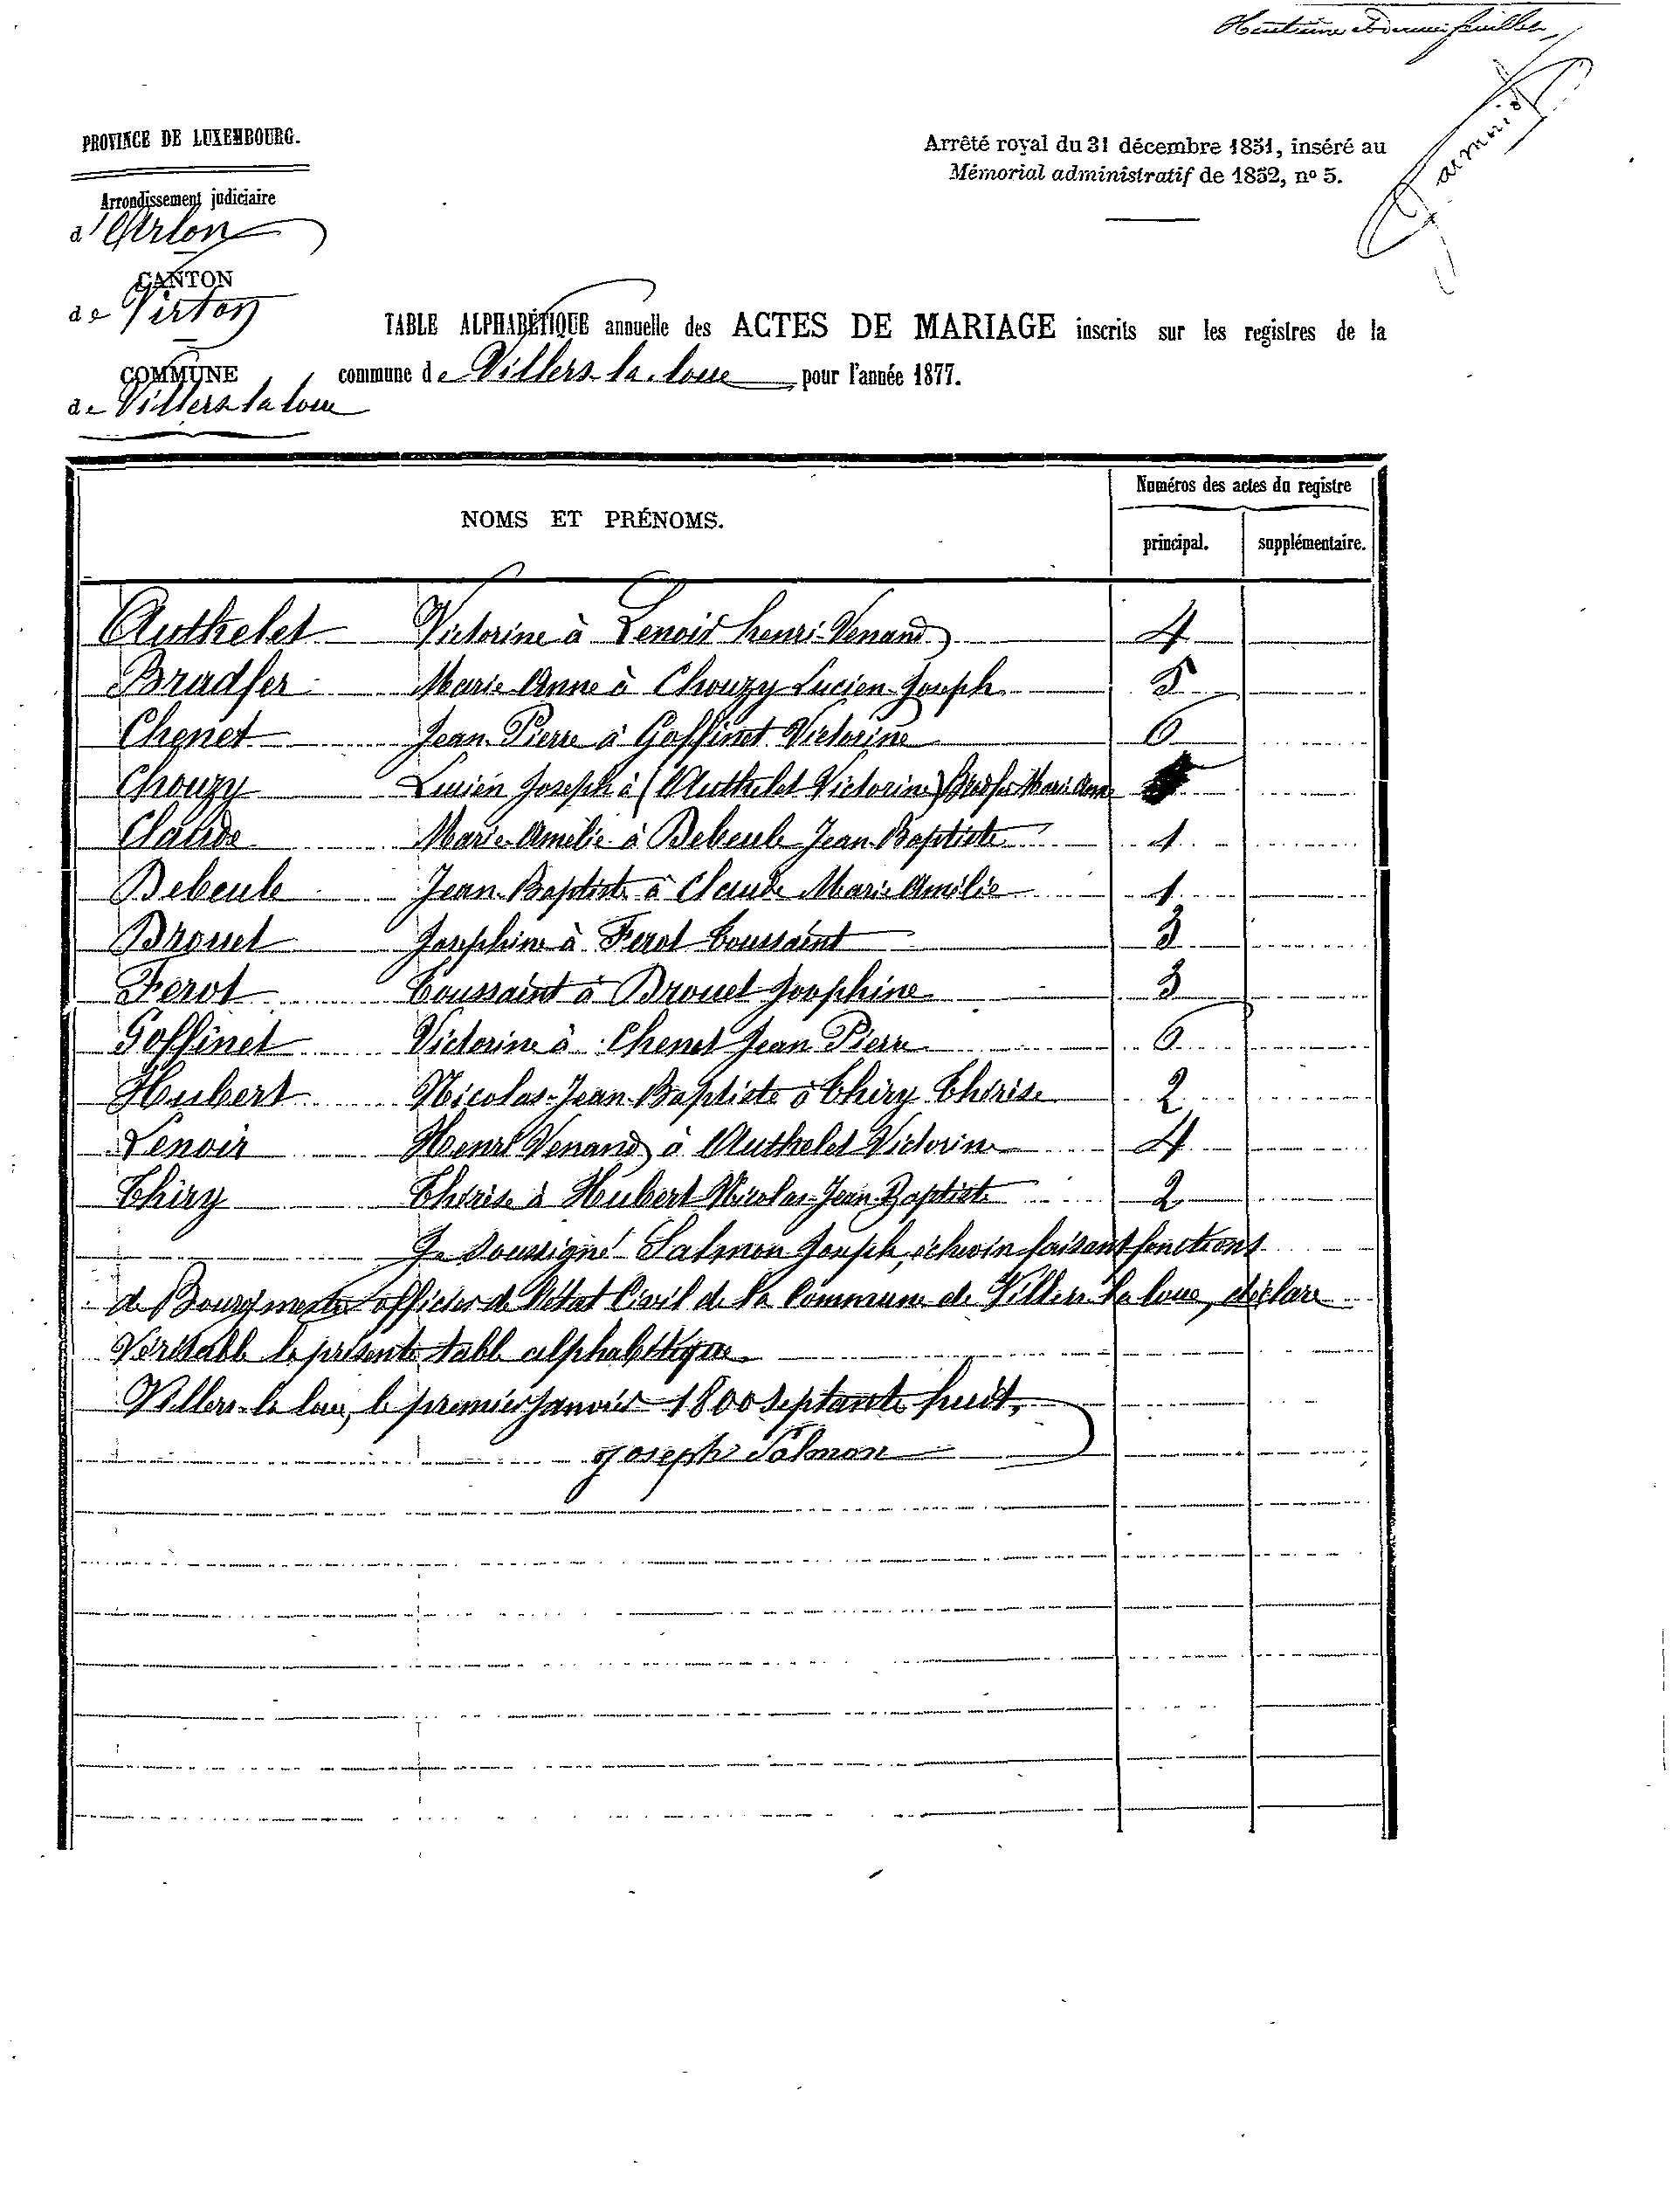 Huitième et dernier feuillet
PROVINCE DE LUXEMBOURG.
Arrondissement judiciaire
d'Arlon
CANTON
de Virton
COMMUNE
de Villers la loue
Arrêté royal du 31 décembre 1851, inséré au
Mémorial administratif de 1852, nº 5.
TABLE ALPHABÉTIQUE annuelle des ACTES DE MARIAGE inscrits sur les registres de la
commune de Villers-la-loue pour l'année 1877.
NOMS ET PRÉNOMS.
Numéros des actes du registre
principal. supplémentaire.
Authelet Victorine à Lenoir henri-Venand 4
Bradfer Marie-Anne à Chouzy Lucien-Joseph 5
Chenet Jean-Pierre à Goffinet Victorine 6
Chouzy Lucien Joseph à (Authelet Victorine) Bradfer Marie Anne
Claude Marie-Amélie à Debeule Jean-Baptiste 1
Debeule Jean-Baptiste à Claude Marie Amélie 1
Drouet Joséphine à Ferot Toussaint 3
Ferot Toussaint à Drouet Joséphine 3
Goffinet Victorine à Chenet Jean Pierre 6
Hubert Nicolas-Jean-Baptiste à Thiry Thérèse 2
Lenoir Henri Venand à Authelet Victorine 4
Thiry Thérèse à Hubert Nicolas-Jean-Baptiste 2
Je soussigné Salmon Joseph, échevin faisant fonctions
de Bourgmestre officier de l'état Civil de la Commune de Villers-la loue, déclare
Véritable la présente table alphabétique
Villers-la loue, le premier janvier 1800 septante huit.
Joseph Salmon